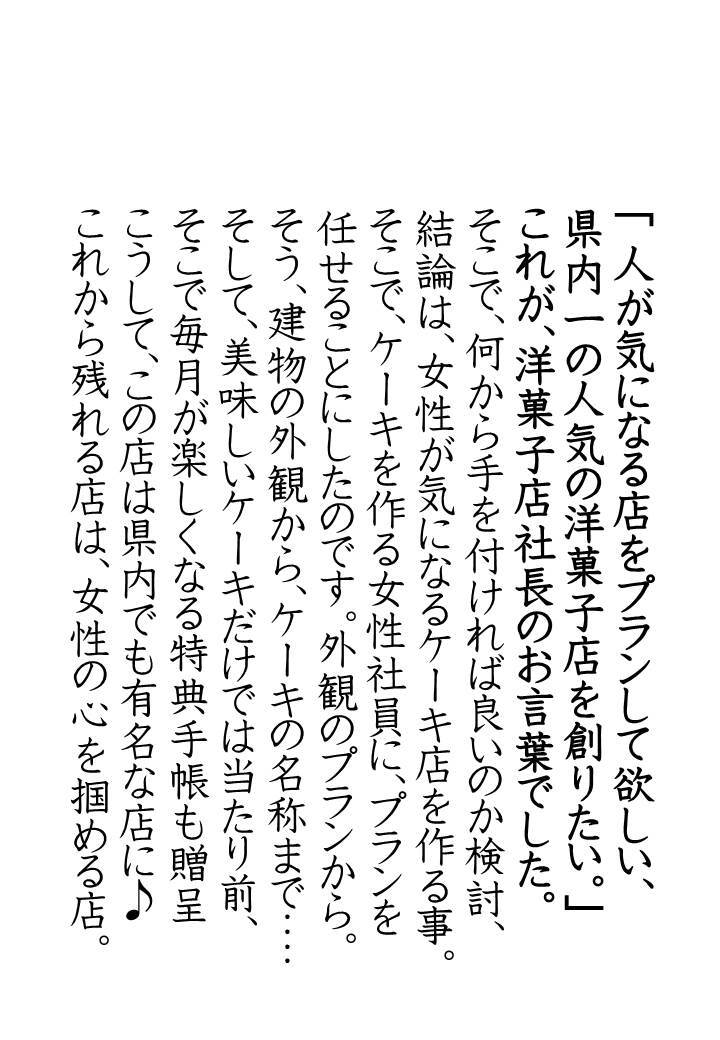 「人が気になる店をプランして欲しい、
県内一の人気の洋菓子店を創りたい。」
これが、洋菓子店社長のお言葉でした。
そこで、何から手を付ければ良いのか検討、
結論は、女性が気になるケーキ店を作る事。
そこで、ケーキを作る女性社員に、プランを
任せることにしたのです。外観のプランから。
そう、建物の外観から、ケーキの名称まで‥‥
そして、美味しいケーキだけでは当たり前、
そこで毎月が楽しくなる特典手帳も贈呈
こうして、この店は県内でも有名な店に♪
これから残れる店は、女性の心を掴める店。